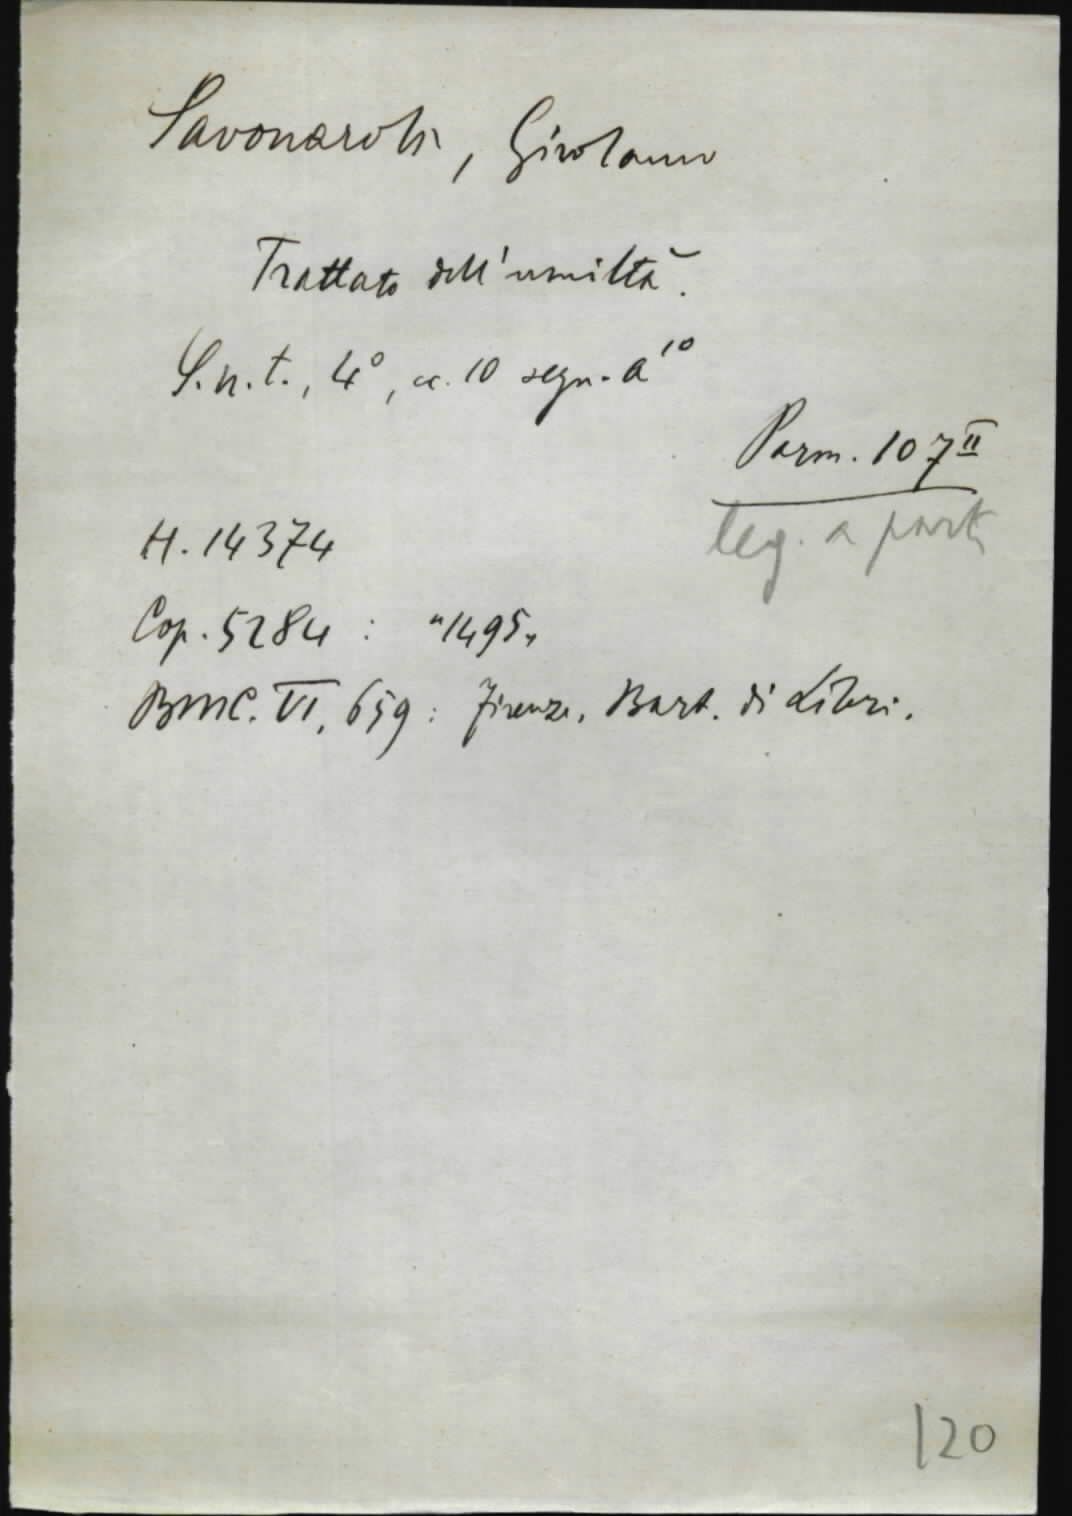 Savonarola, Girolamo
Trattato dell'umiltà.
S.n.t., 4°, cc. 10 segn. a¹⁰
Parm. 107ᴵᴵ
leg. a parte
H. 14374
Cop. 5284 : "1495„
BMC. VI, 659: Firenze, Bart. di Libri.
120